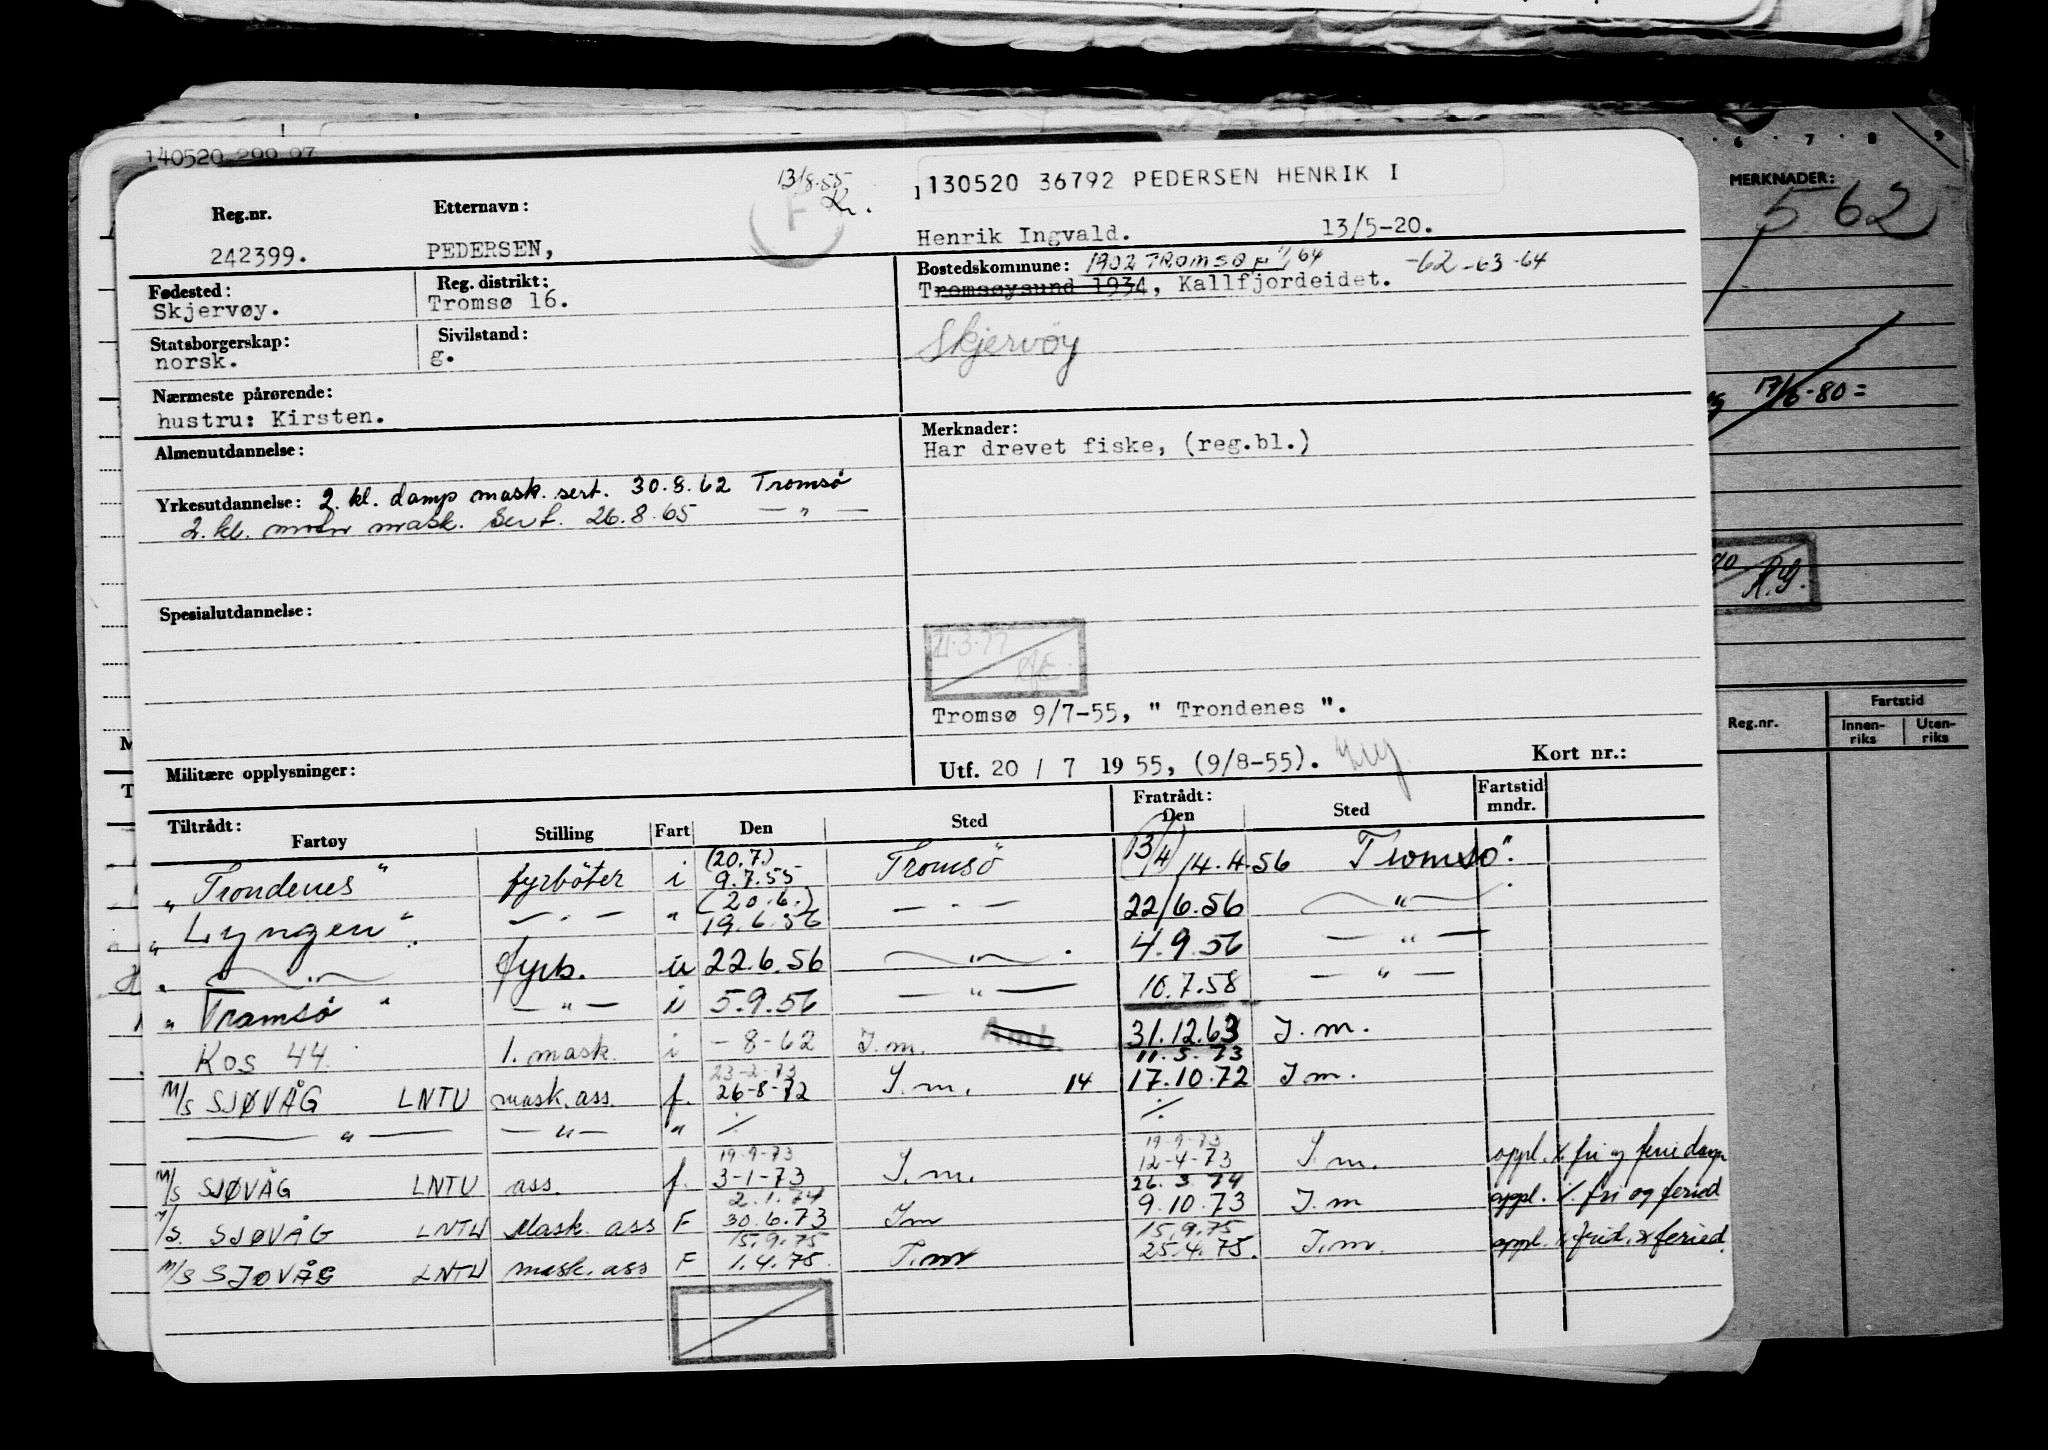 140520 299 07
13/8-55
130520 36792 PEDERSEN HENRIK I
MERKNADER:
562
Reg.nr. Etternavn: F
242399. PEDERSEN, Henrik Ingvald. 13/5-20.
Fødested: Reg. distrikt: Bostedskommune: 1902 TROMSØ -62-63-64
Skjervøy. Tromsø 16. Tromsøysund 1934, Kallfjordeidet.
Statsborgerskap: Sivilstand: Skjervöy
norsk. g.
17/6-80=
Nærmeste pårørende:
hustru: Kirsten.
Almenutdannelse: Merknader:
Har drevet fiske, (reg.bl.)
Yrkesutdannelse: 2. kl. damp mask. sert. 30.8.62 Tromsö
2. kl. motor mask. Sert. 26.8.65 — " —
Spesialutdannelse:
21.3.77
Tromsø 9/7-55, " Trondenes ".
Militære opplysninger: Utf. 20 / 7 19 55, (9/8-55). Kort nr.:
Reg.nr. Fartstid
Innenriks Utenriks
Tiltrådt: Fratrådt: Fartstid mndr.
Fartøy Stilling Fart Den Sted Den Sted
"Trondenes" fyrböter i (20.7.) 9.7.55 Tromsö 13/4 14.4.56 Tromsö.
"Lyngen". — " — " (20.6.) 19.6.56 — " — 22/6.56 — " —
" — " — fyrb. u 22.6.56 — " — 4.9.56 — " —
"Tromsö" — " — i 5.9.56 — " — 10.7.58 — " —
Kos 44. 1. mask. i -8-62 T.m. Amb 31.12.63 T.m.
23-2-73 11.5.73
M/S SJØVÅG LNTU mask. ass. f. 26-8-72 T.m. 14 17.10.72 T.m.
— " — — " — " ./. ./.
19-9-73 19-9-73
M/S SJØVÅG LNTU ass. f. 3-1-73 T.m. 12-4-73 T.m. oppl. % fri og
2.1.74 26.3.74
M/S. SJØVÅG LNTU Mask. ass F 30.6.73 Tm 9.10.73 T.m oppl. % fri og feried
15.9.75 15.9.75
M/S SJØVÅG LNTU mask. ass F 1.4.75. T.m 25.4.75. T.m. oppl. % frid. & feried.